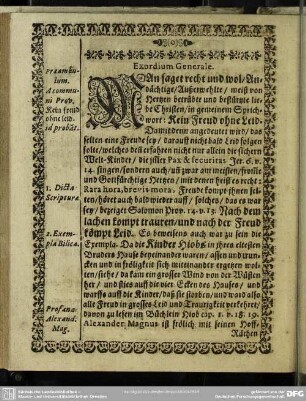 Exordium Generale.
MAn saget recht und wol/ An-
dächtige/ Außerwehlte/ weiß von
Hertzen betrübte und bestürtzte lie-
be Christen/ in gemeinem Sprich-
wort: Kein Freud ohne Leid.
Damit denn angedeutet wird/ das
selten eine Freude sey/ darauff nicht bald Leid folgen
solte/ welches deß erfahren nicht nur allein die sichern
Welt-Kinder/ die ihr Pax & securitas Jer. 6. v.
14. singen/ sondern auch
und Gottfürchtige Hertzen/ mit denen heist es recht:
Rara hora, brevis mora; Freude kompt ihnen sel-
ten/ höret auch bald wieder auff/ solches/ das es war
sey/ bezeiget Salomon Prov. 14. v. 13 Nach dem
lachen kompt trauren/ und nach der Freud
kömpt Leid. Es beweisens auch war zu seyn die
Exempla. Da die Kinder Hiobs in ihres eltesten
Bruders Hause beyeinander waren/ assen und trun-
cken und in fröligkeit sich miteinander ergetzen wol-
ten/ siehe/ da kam ein grosser Wind von der Wüsten
her/ und stieß auff die vier Ecken des Hauses/ und
warffs auff die Kinder/ daß sie storben/ und ward also
alle Freud in grosses Leid und Traurigkeit verkehret/
davon zu lesen im Büchlein Hiob cap. 1. v. 18. 19.
Alexander Magnus ist frölich mit seinen Hoff-
Räthen
Præambu-
lum.
A communi
Prov.
Kein freud
ohne leid.
id probat.
1. Dicta
Scripturæ.
2. Exem-
pla Biblica.
Profana.
Alexand.
Mag.